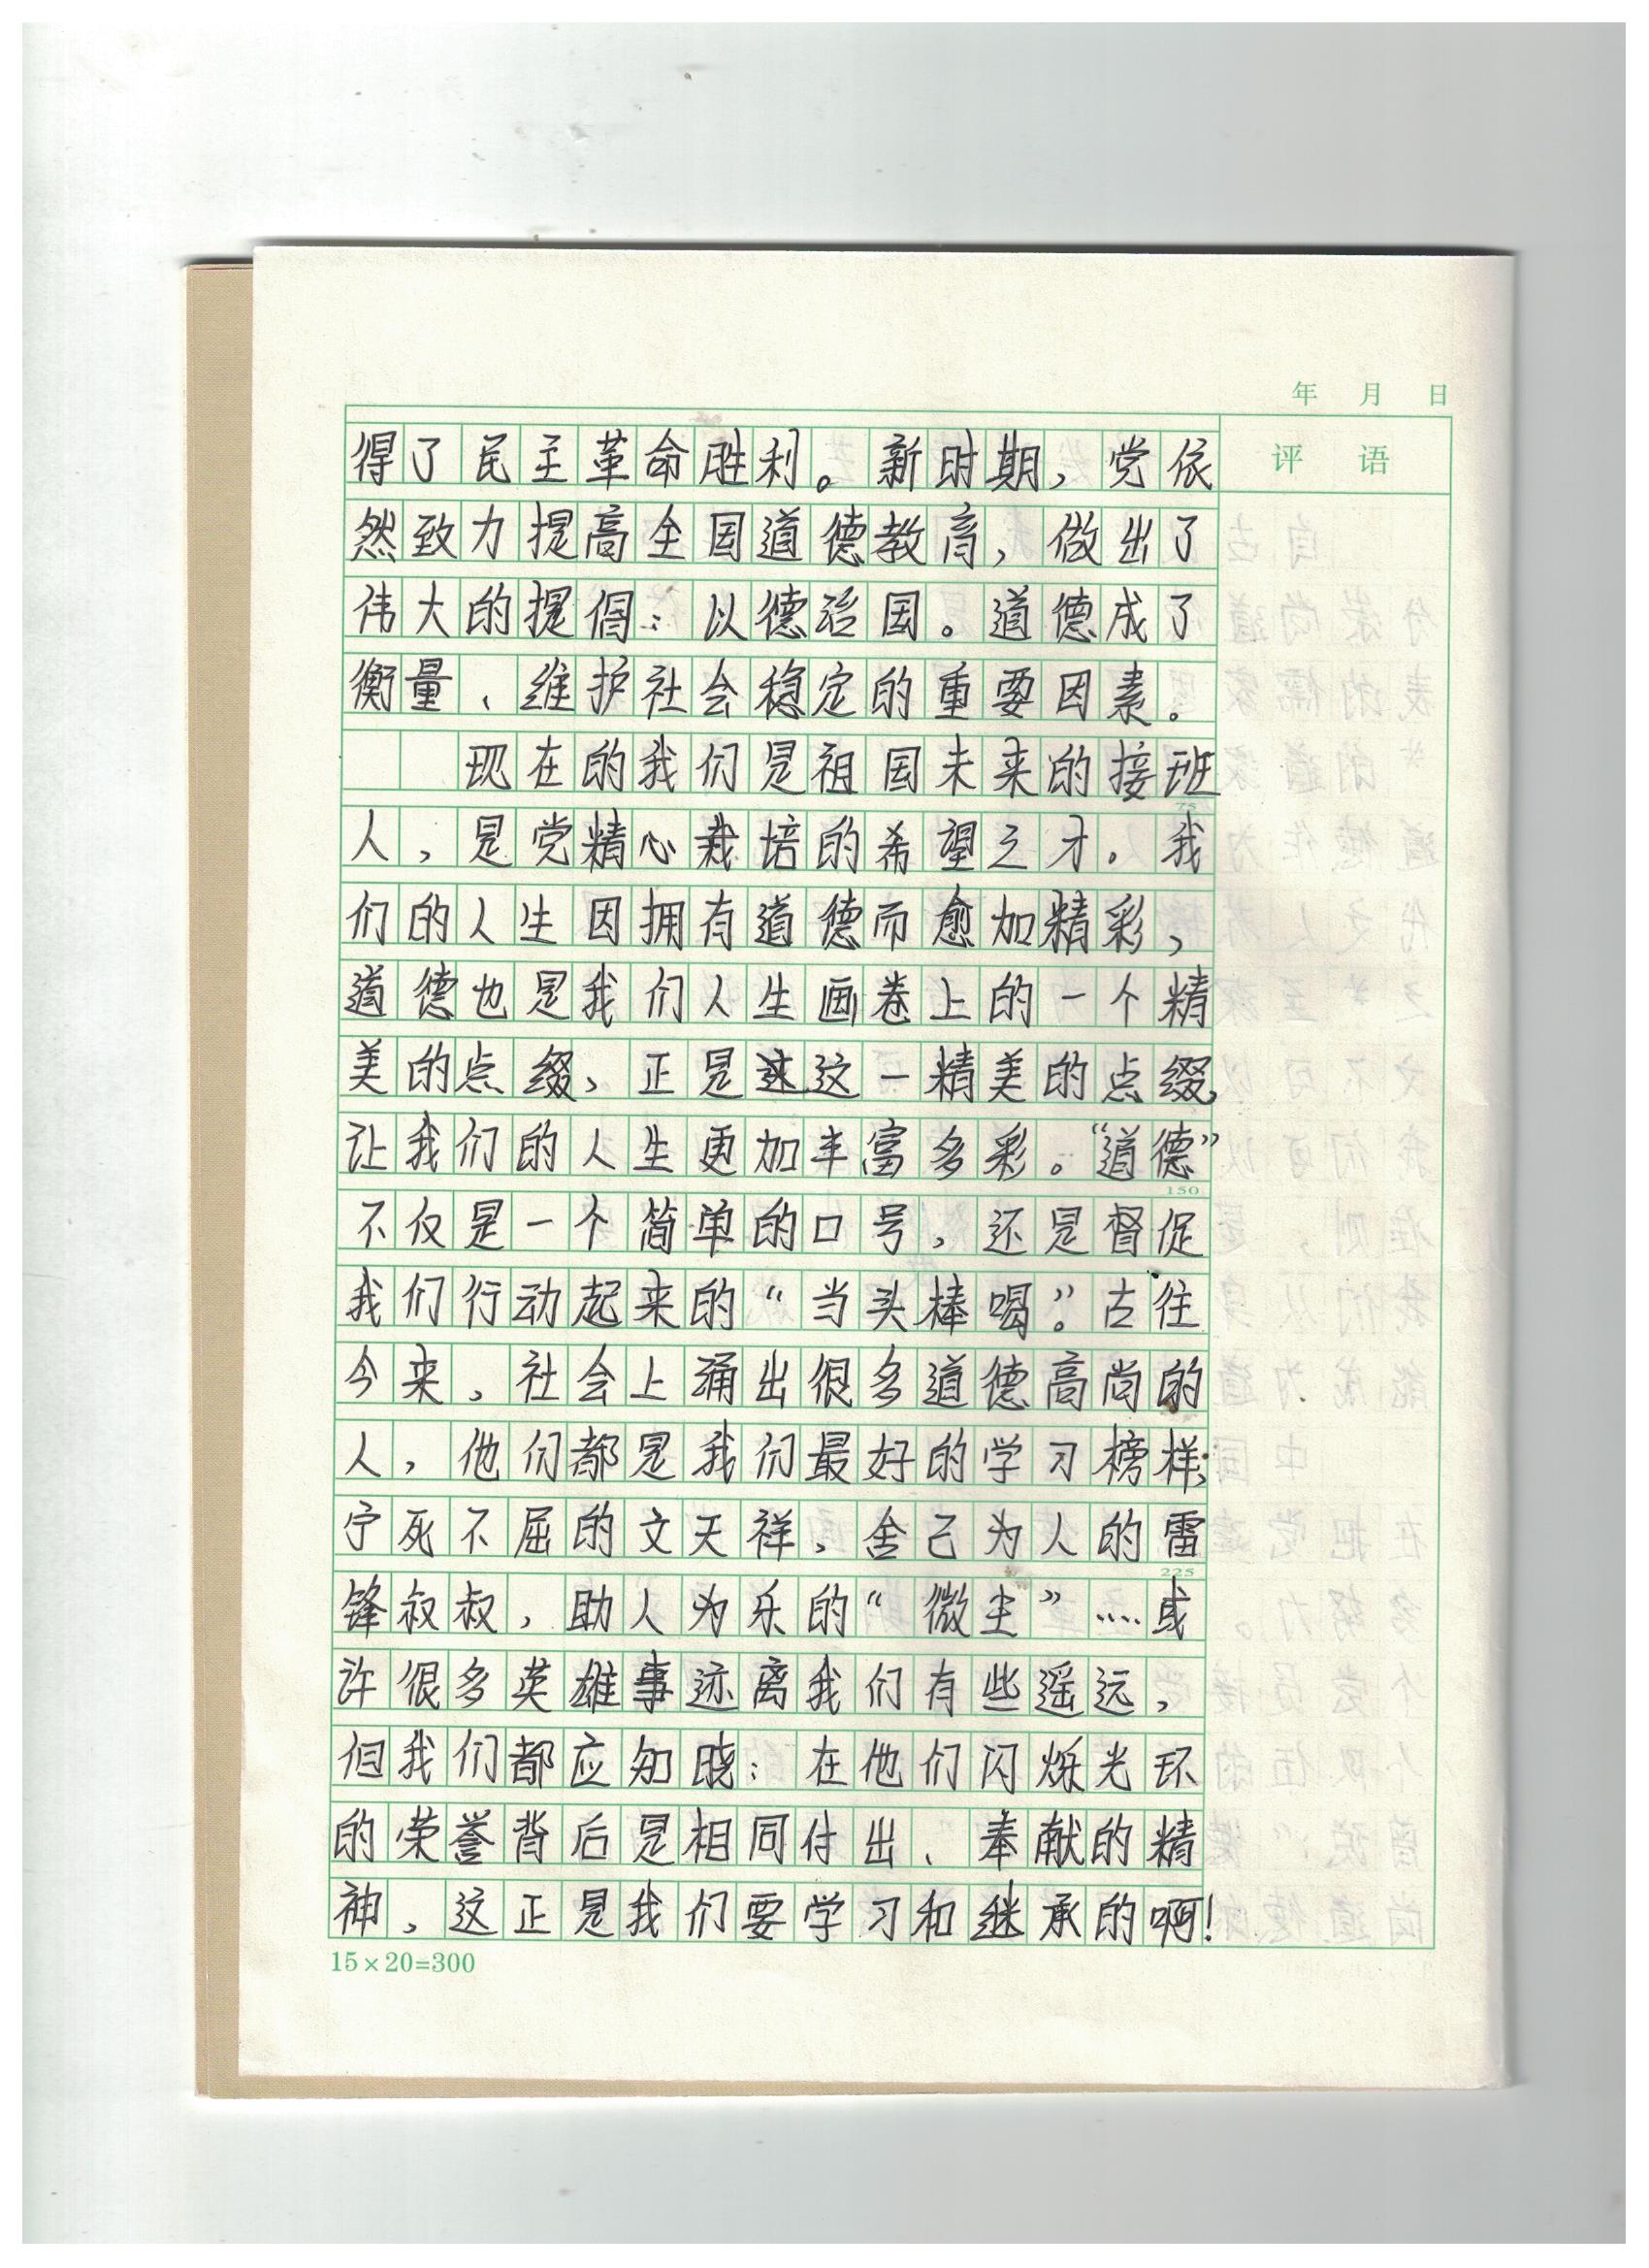 年 月 日
评 语
得了民主革命胜利。新时期，党依
然致力提高全国道德教育，做出了
伟大的提倡：以德治国。道德成了
衡量、维护社会稳定的重要因素。
现在的我们是祖国未来的接班
人，是党精心栽培的希望之才。我
们的人生因拥有道德而愈加精彩，
道德也是我们人生画卷上的一个精
美的点缀，正是这一精美的点缀，
让我们的人生更加丰富多彩。“道德”
不仅是一个简单的口号，还是督促
我们行动起来的“当头棒喝”。古往
今来，社会上涌出很多道德高尚的
人，他们都是我们最好的学习榜样；
宁死不屈的文天祥，舍己为人的雷
锋叔叔，助人为乐的“微尘”……或
许很多英雄事迹离我们有些遥远，
但我们都应知晓：在他们闪烁光环
的荣誉背后是相同付出、奉献的精
神，这正是我们要学习和继承的啊！
75
150
225
15×20=300